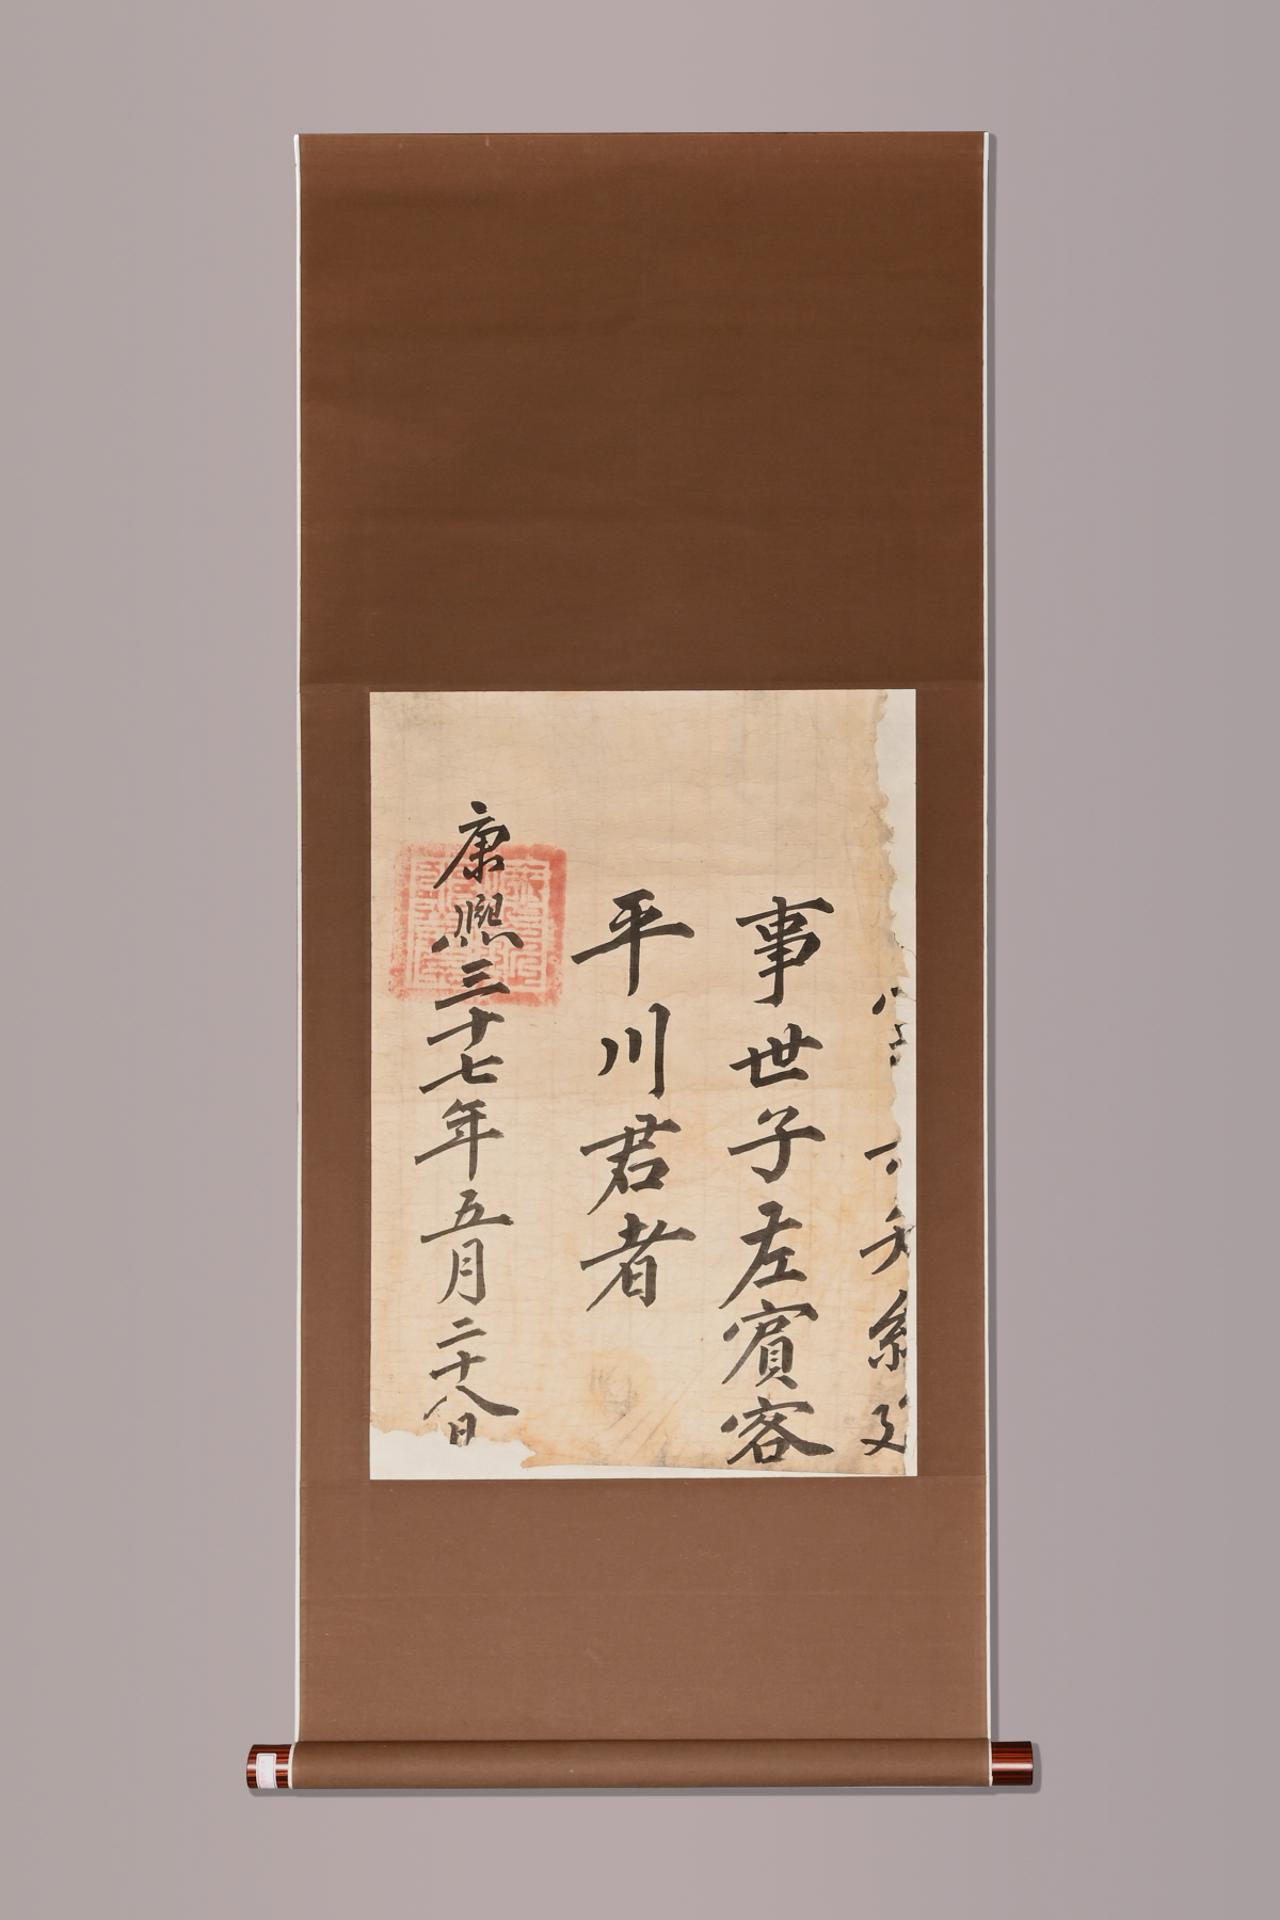 知經
事世子左賓客
平川君者
康熙三十七年五月二十八日